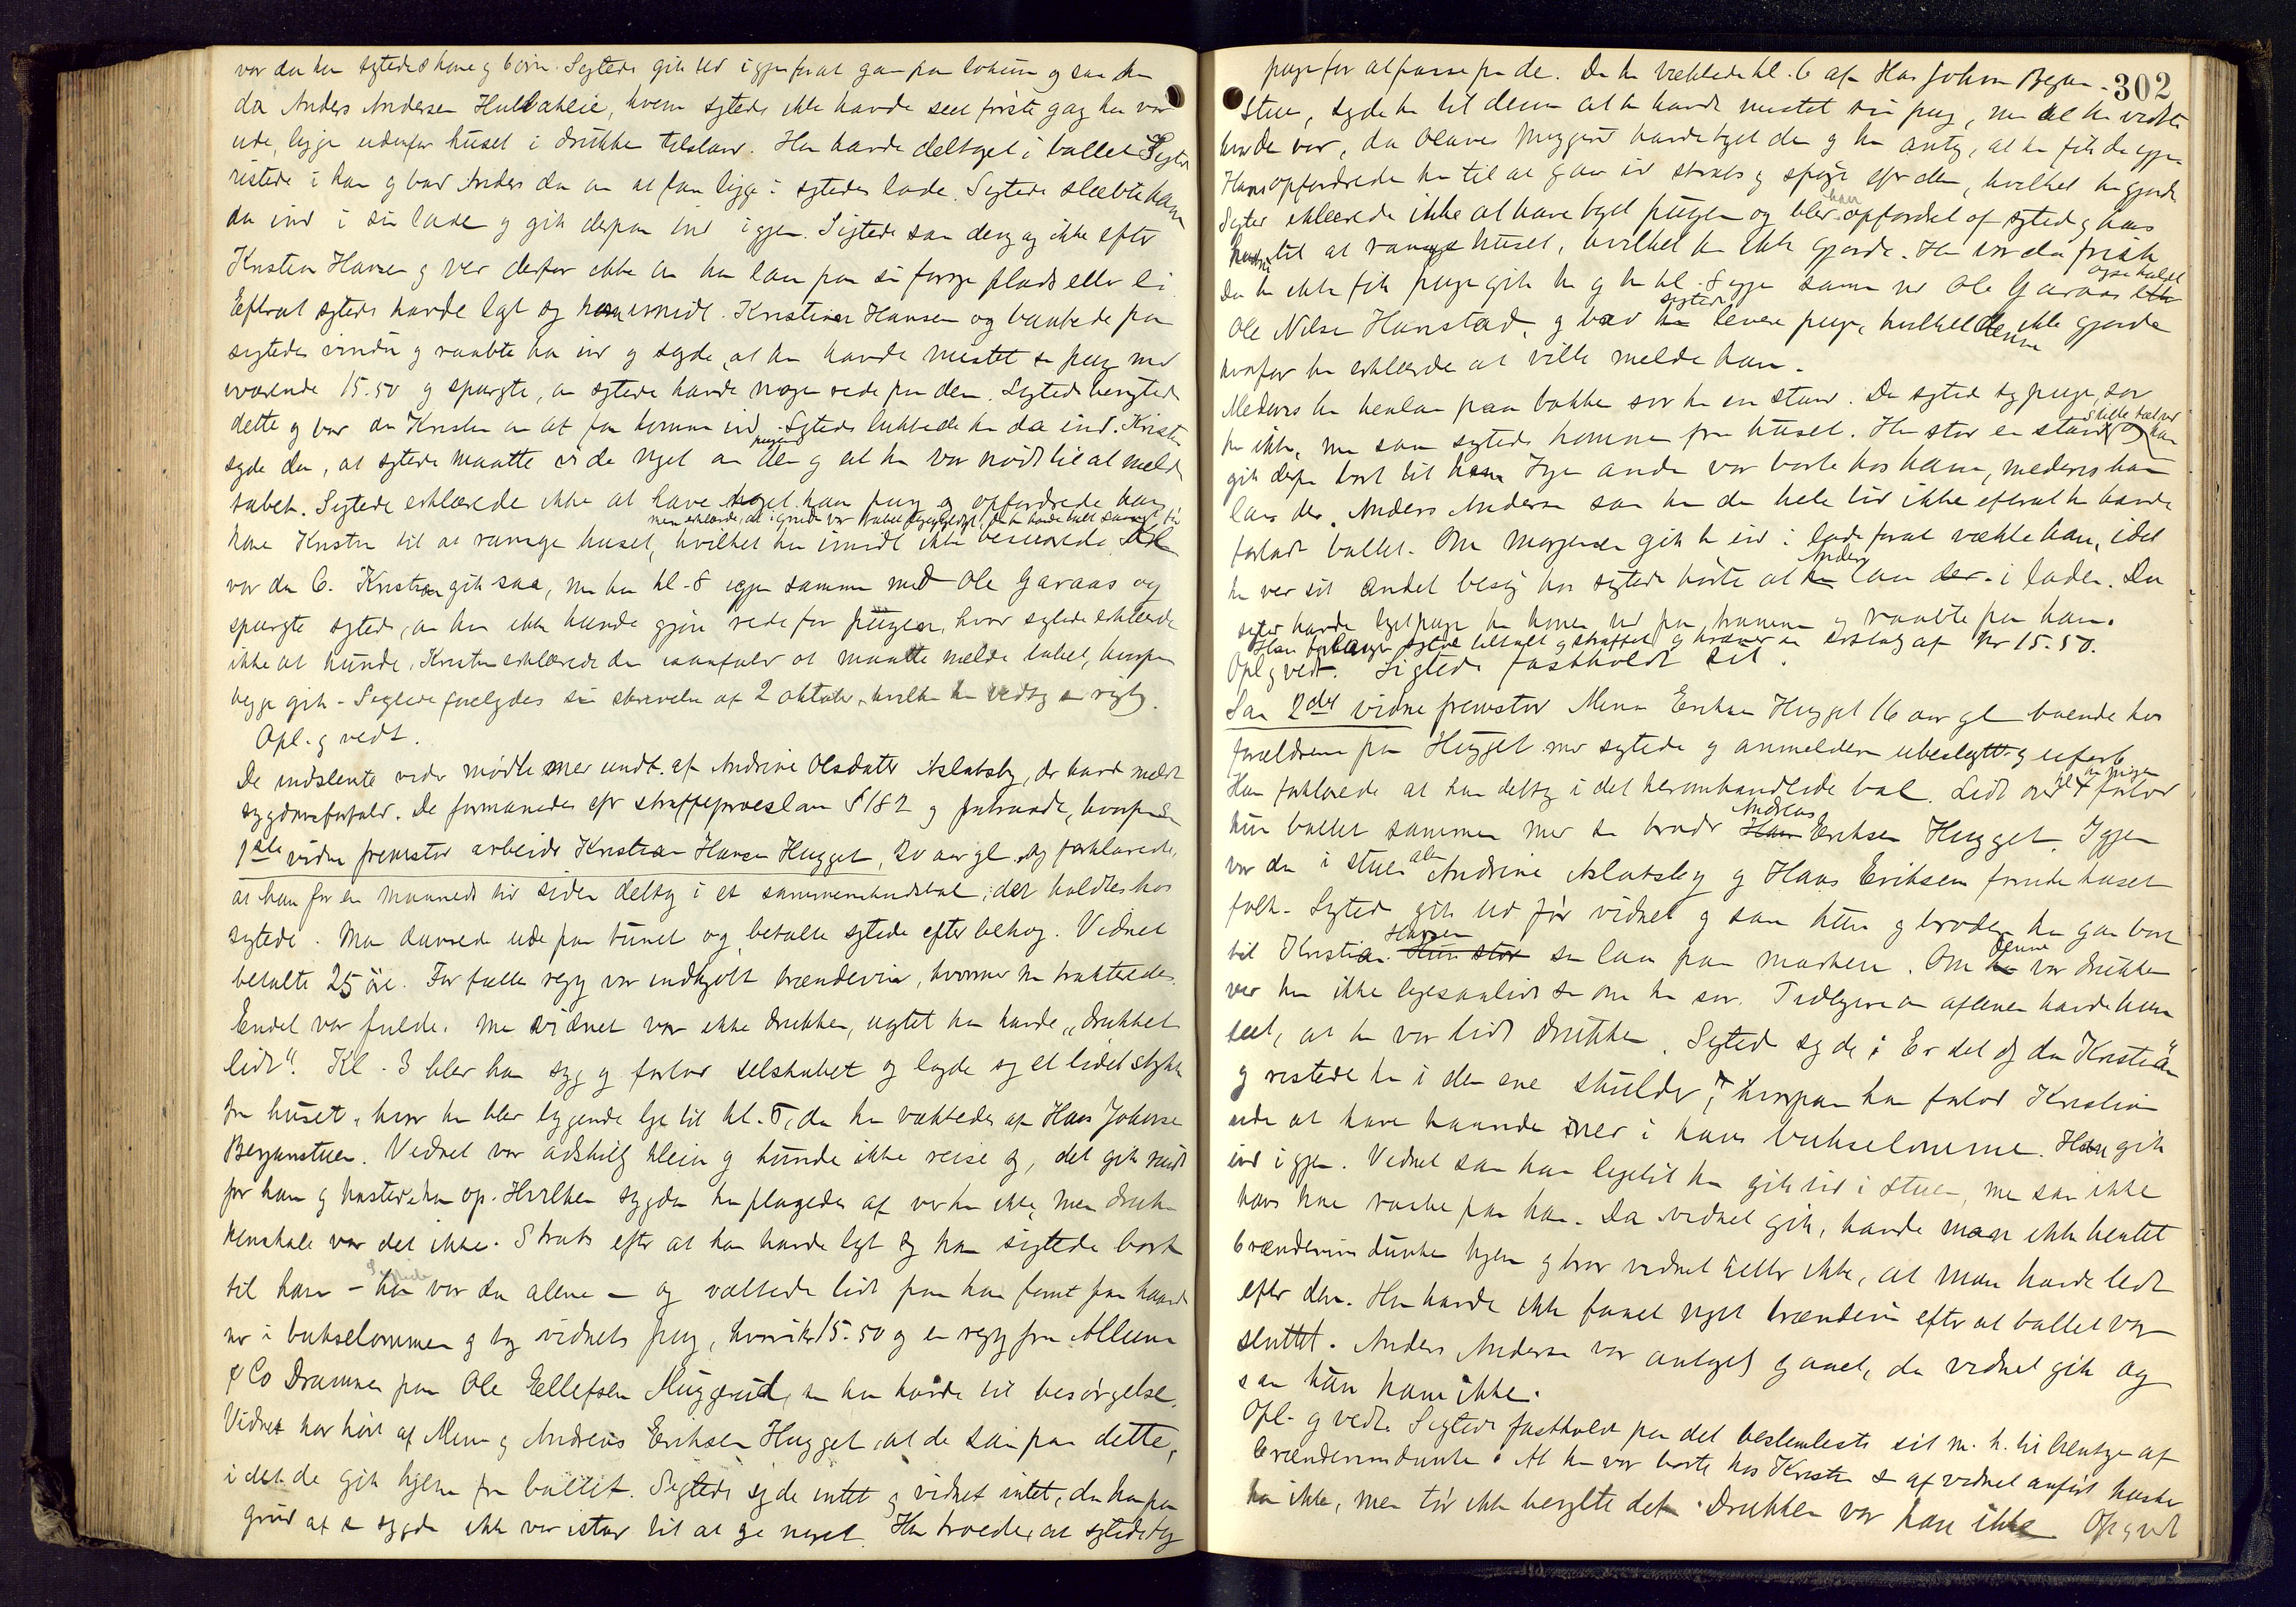 var da kun sigtedes kone og börn. Sigtede gik ud igjen forat gaa paa lokum og saa han
da Anders Andersen Hulbakeie, hvem sigtede ikke havde seet første gang han var
ude, ligge udenfor huset i drukken tilstand. Han havde deltaget i ballet Sigtede
ristede i ham og bad Anders da om at faa ligge i sigtedes lade. Sigtede slæbte ham
da ind i sin lade og gik derpaa ind igjen. Sigtede saa dengang ikke efter
Kristian Hansen og ved derfor ikke om han laa paa sin forrige plads eller ei.
Efterat sigtede havde lagt sig kom imidl. Kristian Hansen og bankede paa
sigtedes vindu og raabte ham ind og sagde, at han havde mistet sin pung med
iværende 15.50 og spurgte, om sigtede havde nogen rede paa den. Sigtede benegtede
dette og bad da Kristian om at faa komme ind. Sigtede lukkede ham da ind. Kristian
sagde da, at sigtede maatte vide noget om pungen den og at han var nødt til at melde
sabet. Sigtede erklærede ikke at have taget hans pung og opfordrede han
men erklærede, at i grunden var
kone Kristian til at ransage huset, hvilket han imidl. ikke besvarede. Kl.
var da 6. Kristian gik saa, men kom kl. 8 igjen sammen med Ole Garaas og
spurgte sigtede, om han ikke kunde gjöre rede for pungen, hvor sigtede erklærede
ikke at kunde. Kristian erklærede da isaafald at maatte melde tabet, hvorpaa
begge gik. - Sigtede forelagdes sin skrivelse af 2 oktober, hvilken han vedtog som rigtig.
Opl. og vedt.
De indstevnte vidner mødte med undt. af Andrine Olsdatter Aslaksby, der havde meldt
sygdomsforfald. De formanedes efter straffeproceslovens § 182 og fratraadte, hvorpaa som
1ste vidne fremstod arbeider Kristian Hansen Hugget, 20 aar gl. og forklarede,
at han for en maaneds tid siden deltog i et sammenskudsbal, der holdtes hos
sigtede. Man dansede ude paa tunet og betalte sigtede efter behag. Vidnet
betalte 25 öre. For fælles regning var indkjøbt brændevin, hvormed man trakteredes.
Endel var fulde. Men vidnet var ikke drukken, uagtet han havde „drukket
lidt“. Kl. 3 blev han syg og forlod selskabet og lagde sig et lidet stykke
fra huset, hvor han blev liggende lige til kl. 5, da han vækkedes af Hans Johnsen
Berganstuen. Vidnet var adskillig klein og kunde ikke reise sig, det gik rundt
for ham og kastede han op. Hvilken sygdom han plagedes af ved han ikke, men druk-
kenskab var det ikke. Straks efter at han havde lagt sig kom sigtede bort
til ham - Sigtede han var da alene - og væltede lidt paa ham foer saa haand
ned i bukselommen og tog vidnets pung, hvori kr 15.50 og en regning fra Allum
& Co Drammen paa Ole Ellefsen Muggerud, som han havde til besørgelse.
Vidnet har hört af Mina og Andreas Eriksen Hugget, at de saa paa dette,
idet de gik hjem fra ballet. Sigtede sagde intet og vidnet intet, da han paa
grund af sin sygdom ikke var istand til at sige noget. Han troede, at sigtede tog
302
pungen for at passe paa de. Da han vækkedes kl. 6 af Hans Johnsen Bergan-
stuen, sagde han til denne at han havde mistet sin pung, men at han vidste
hvor de var, da Olaves Muggerud havde taget den og han antog, at han fik de igjen
Hans opfordrede ham til at gaa ind straks og spørge efter den, hvilket han gjorde
Sigtede erklærede ikke at have taget pungen og blev han opfordret af sigtede og hans
hustru til at ransage huset, hvilket han ikke gjorde. Han var da frisk
Da han ikke fik pungen gik han og kom kl. 8 igjen sammen med Ole Garaas ogsaa kaldet
Ole Nilsen Hanstad, og bad sigtede levere pungen, hvilket denne ikke gjorde
hvorfor han erklærede at ville melde ham.
Medens han henlaa paa bakken sov han en stund. Da sigtede tog pungen, sov
han ikke, men saa sigtede komme fra huset. Han stod en stund og
gik derpaa bort til ham. Ingen anden var borte hos ham, medens han
laa der. Anders Andersen saa han den hele tid ikke efterat han havde
forladt ballet. Om morgenen gik han ind i laden forat vække ham, idet
han ved sit andet besög hos sigtede hørte at Anders laa der i laden. Da
sigtede havde taget pungen kom konen ud paa trammen og raabte paa ham.
Han forlanger sigtede tiltalt og straffet og kræver en erstatning af kr 15.50.
Opl og vedt. Sigtede fastholdt sit.
Som 2det vidne fremstod Mina Eriksen Hugget 16 aar gl. boende hos
forældrene paa Hugget med sigtede og anmelderen ubeslægtet og usvogret
Hun forklarede at hun deltog i det heromhandlede bal. Lidt over kl 4 om morgen forlod
hun ballet sammen med sin broder Andreas Eriksen Hugget. Igjen
var da i stuen alene Andrine Aslaksby og Hans Eriksen foruden husets
folk. Sigtede gik ud før vidnet og saa hun og broderen ham gaa bort
til Kristian Hansen som laa paa marken. Om denne var drukken
ved hun ikke ligesaalidt som om han sov. Tidligere om aftenen havde hun
seet, at han var lidt drukken. Sigtede sagde: „Er det dig da Kristian“
og ristede ham i den ene skulder, hvorpaa han forlod Kristian
uden at have haanden nede i hans bukselomme. Han gik
ind igjen. Vidnet saa ham lige til han gik ind i stuen, men saa ikke
hans kone raabe paa ham. Da vidnet gik, havde man ikke hentet
brændevinsdunken hjem og hver vidnet heller ikke, at man havde ledt
efter den. Hun havde ikke faaet noget brændevin efter at ballet var
sluttet. Anders Andersen var antagelig gaaet, da vidnet gik og
saa hun ham ikke.
Opl. og vedt. Sigtede fastholdt paa det bestemteste sit m. h. til hentningen af
brændevinsdunken. At han var borte hos Kristian som af vidnet anført husker
han ikke, men tör ikke benegte det. Drukken var han ikke Opl og vedt